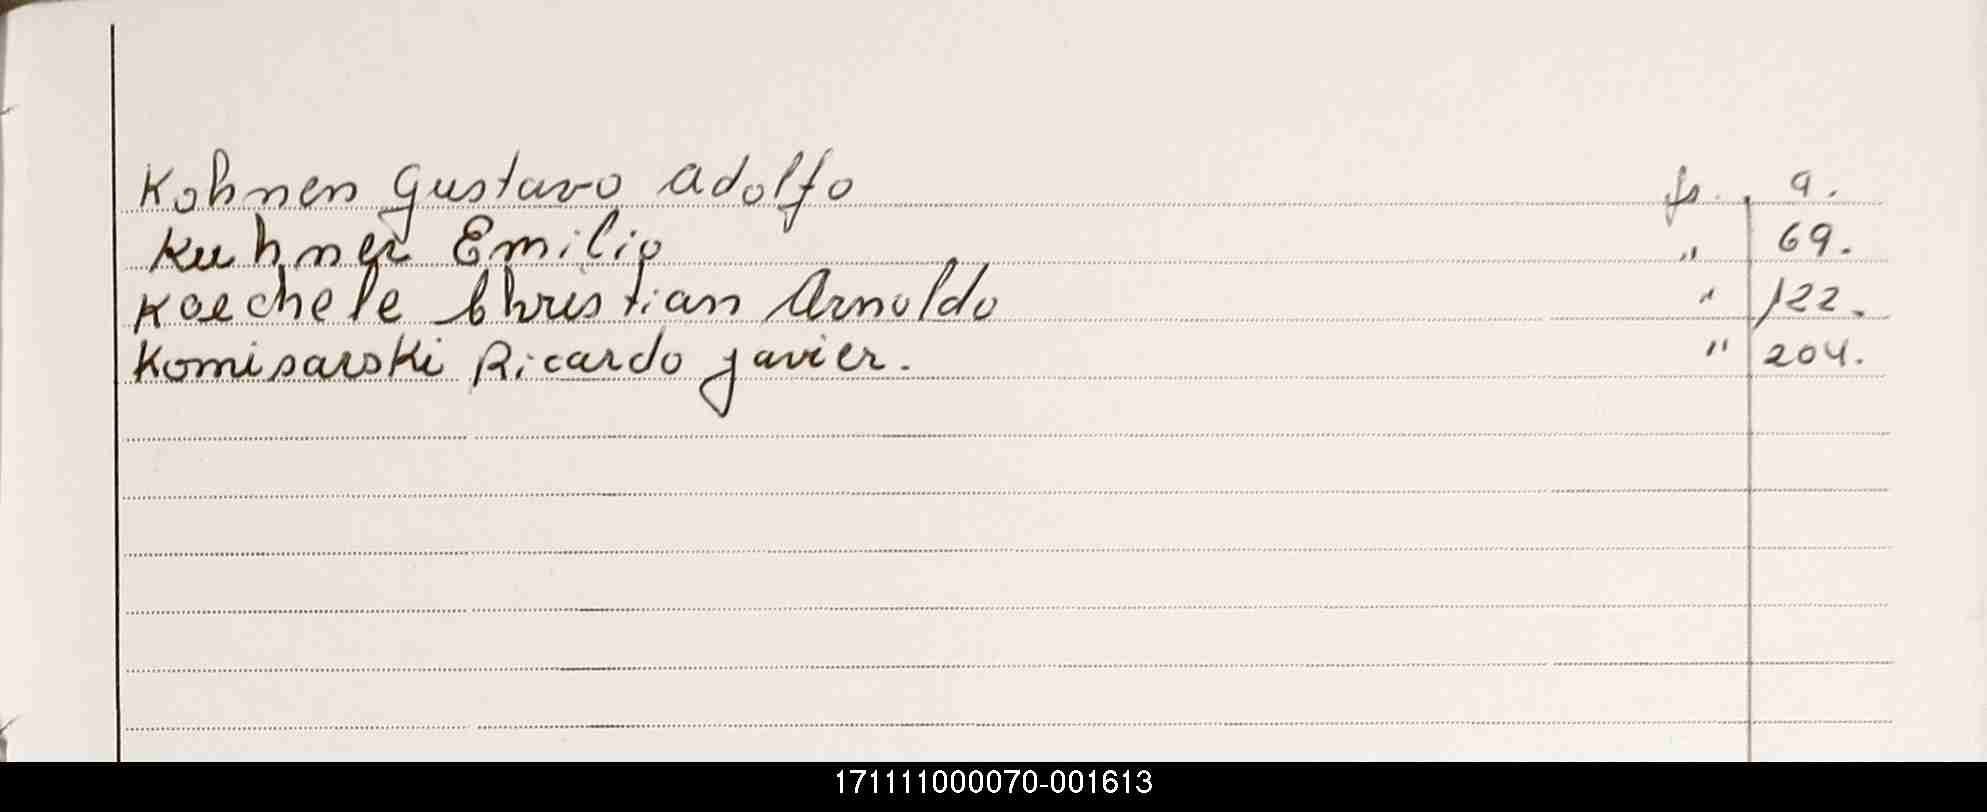 Kohnen Gustavo Adolfo fs. 9.
Kuhner Emilio " 69.
Koechele Christian Arnoldo " 122.
Komisarski Ricardo Javier. " 204.
171111000070-001613